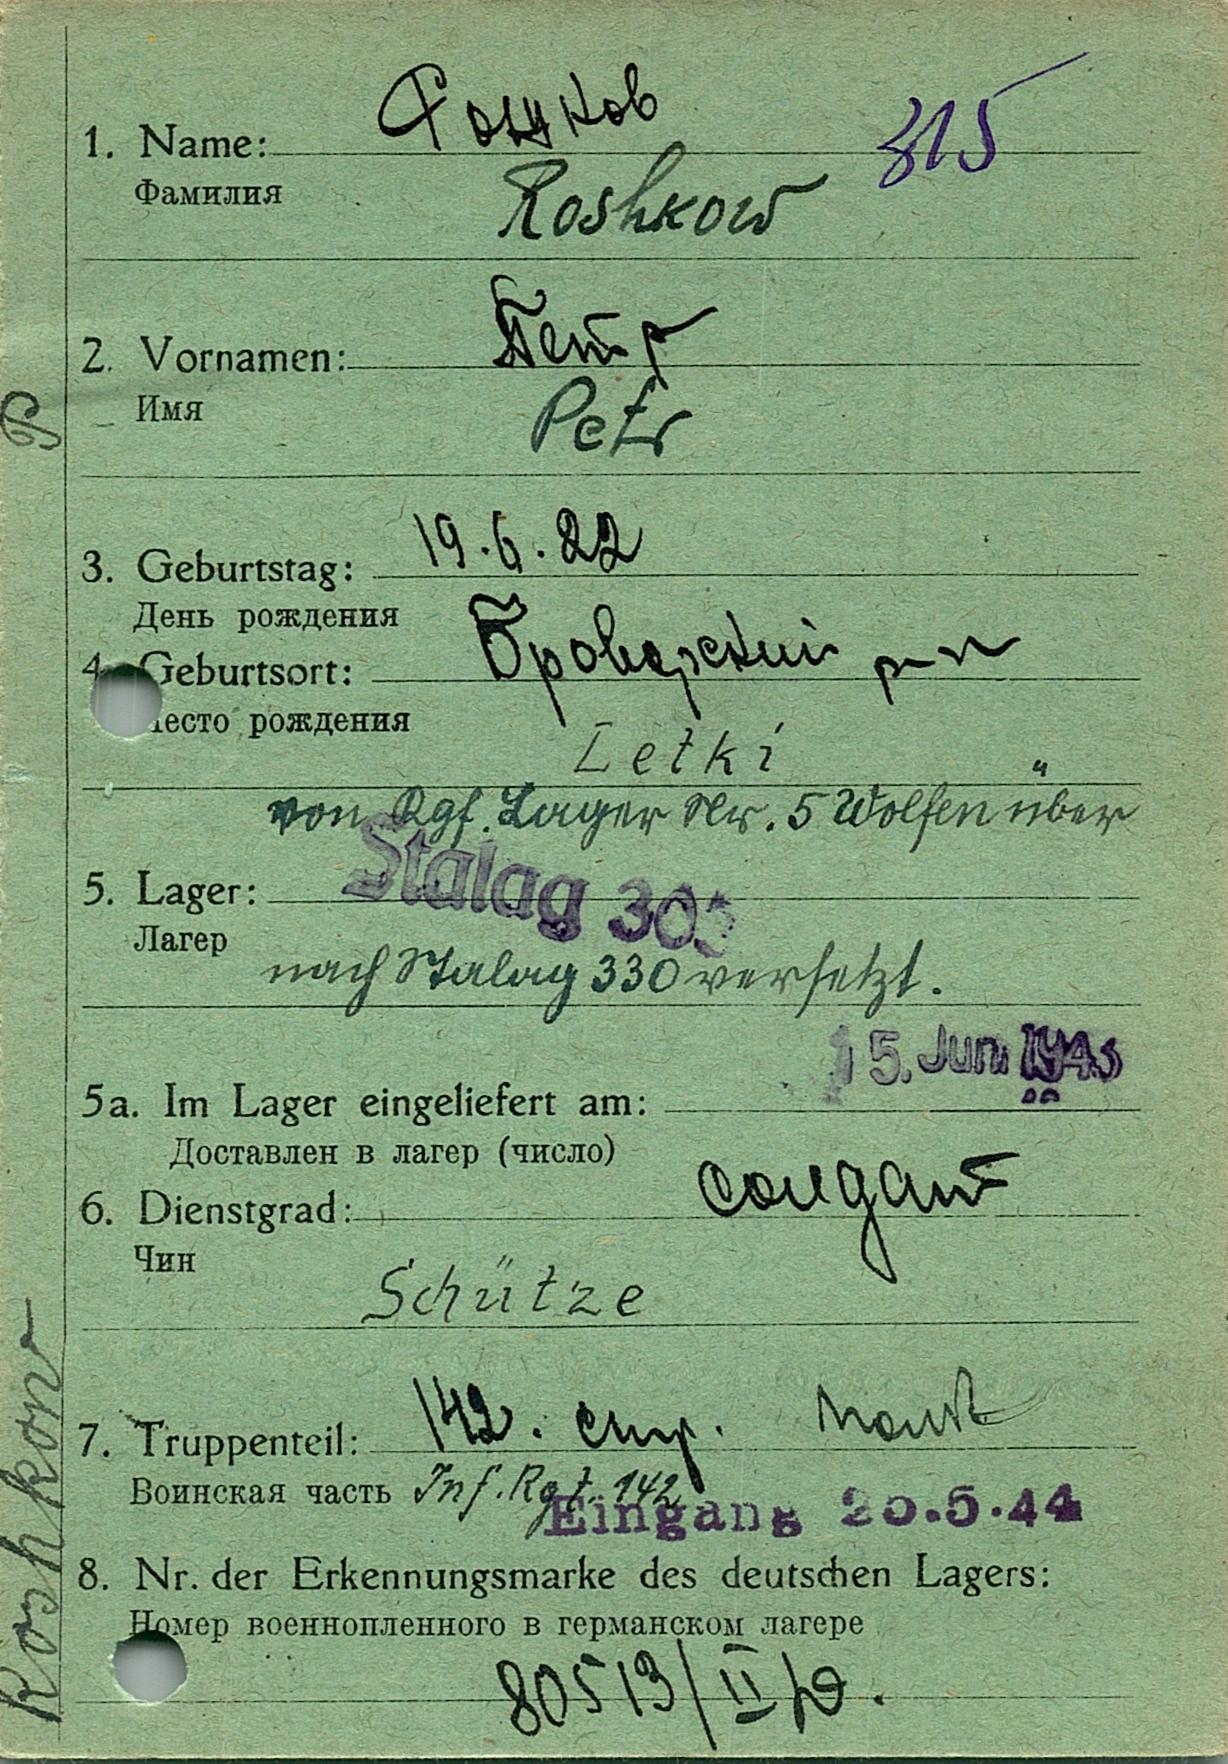 315
1. Name: Рошков
Фамилия
Roshkow
2. Vornamen: Петр
Имя
Petr
P
3. Geburtstag: 19.6.22
День рождения
4. Geburtsort: Броварский р-н
Место рождения
Letki
von Kgf. Lager Nr. 5 Wolfen über
5. Lager: Stalag 303
Лагер
nach Stalag 330 versetzt.
15. Juni 1943
5a. Im Lager eingeliefert am:
Доставлен в лагер (число)
6. Dienstgrad: солдат
Чин
Schütze
7. Truppenteil: 142. стр.
Воинская часть Inf. Rgt. 142
Eingang 20.5.44
8. Nr. der Erkennungsmarke des deutschen Lagers:
Номер военнопленного в германском лагере
80513/II/D.
Roshkow